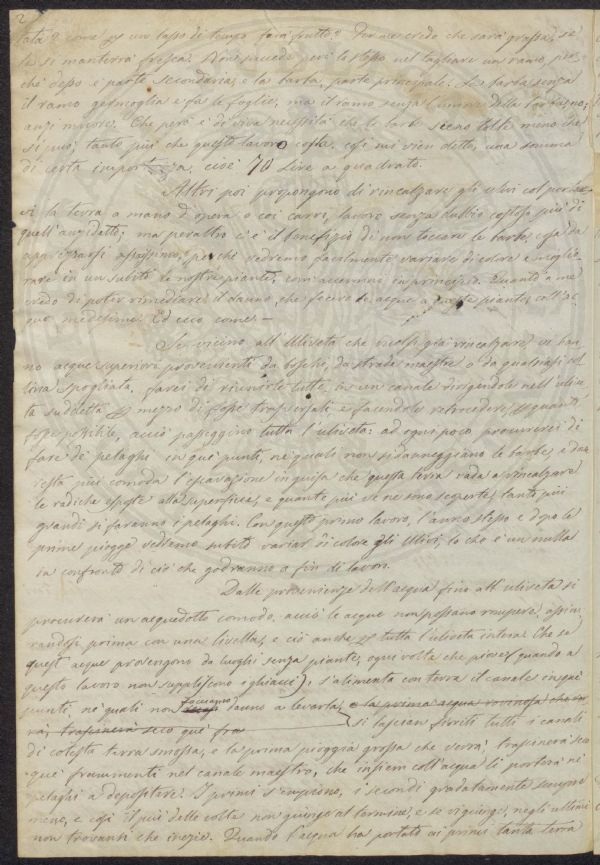 2
tata? come p un lasso di tempo farà frutto? Per me credo che sarà grossa, se
se si manterrà fresca. Non succede però lo stesso nel tagliare un ramo, per-
chè desso è parte secondaria, e la barba, parte principale. La barba senza
il ramo germoglia e fa le foglie, ma il ramo senza l'umore della
anzi muore. Che però è di viva necessità che le barbe sieno tolte meno che
si può; tanto più che questo lavoro costa, così mi vien detto, una somma
di certa importanza, cioè 70 Lire a quadrato.
Altri poi propongono di rincalzare gli ulivi col
vi la terra a mano d'opera o coi carri, lavoro senza dubbio costoso più di
quell'anzidetti; ma peraltro c'è il benefizio di non toccare le barbe, cosa da
apprezzarsi assaissimo, perchè vedremo facilmente variare di colore e miglio
rare in un subito le nostre piante, com'accennai in principio. Quanto a me
credo di poter rimediare il danno, che fecero le acque a queste piante, coll'ac-
que medesime. Ed ecco come. —
Se vicino all'Uliveta che vuolsi già rincalzare vi han
no acque superiori provenienti da boschi, da strade maestre o da qualsiasi col
lina spogliata, farei di riunirle tutte, in un canale dirigendole nell'ulive
ta suddetta p mezzo di fosse trasversali, e facendole retrocedere, p quanti
fosse possibile, acciò passeggino tutta l'uliveta: ad ogni poco procurerei di
fare de' pelaghi in que' punti, ne' quali non si danneggiano le barbe, e dove
resta più comoda l'escavazione in guisa che questa terra vada a rincalzare
le radiche esposte alla superficie, e quante più ve ne sono scoperte, tanti più
grandi si faranno i pelaghi. Con questo primo lavoro, l'anno stesso e dopo le
prime piogge vedremo subito variar di colore gli Ulivi, lo che è un nulla
in confronto di ciò che godranno a fin di lavori.
Dalle provenienze dell'acqua fino all'uliveta si
procurerà un acquedotto comodo, acciò le acque non possano rompere,
randosi prima con una livella, e ciò anche p tutta l'uliveta intera. Che se
quest' acque provengono da luoghi senza piante, ogni volta che piove (quando a
questo lavoro non suppliscono i ghiacci), s'alimenta con terra il canale in que'
punti, ne' quali non facciamo danno a levarla, e la prima acqua rovinosa che ver
rà, trascinerà seco que' fra si lascian forniti tutti i canali
di cotesta terra smossa, e la prima pioggia grossa che verrà, trascinerà seco
que' frammenti nel canale maestro, che insiem coll'acqua li porterà ne'
pelaghi a depositare. I primi s'empiono, i secondi gradatamente sempre
meno, e così il più delle volte non giungo al termine, e se vi giungo, negli ultimi
non trovansi che inezie. Quando l'acqua ha portato ai primi tanta terra